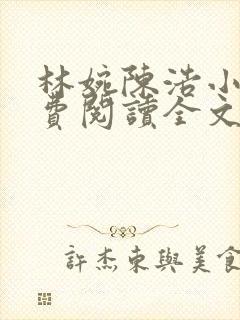 林婉陳浩小
費閱讀全文
許杰東與美食